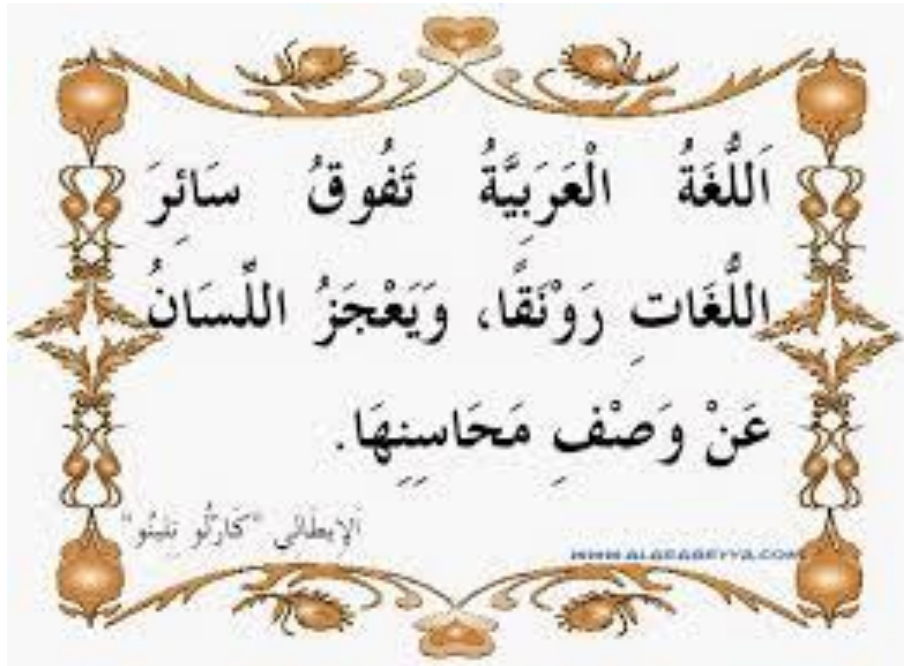 اَللُّغَةُ الْعَرَبِيَّةُ تَفُوقُ سَائِرَ
اللُّغَاتِ رَوْنَقًا، وَيَعْجَزُ اللِّسَانُ
عَنْ وَصْفِ مَحَاسِنِهَا.
الإيطالي "كَارْلُو نِلِينُو"
WWW.ALARABEYYA.COM